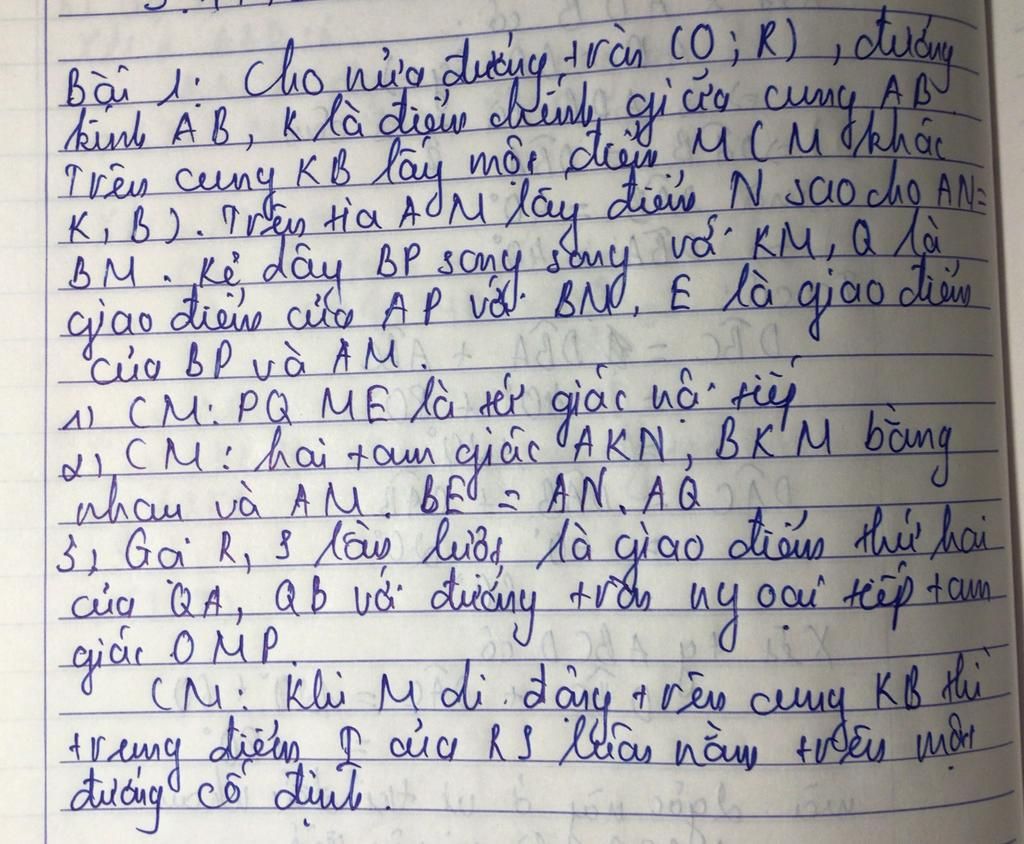 Bài 1: Cho nửa đường tròn (O; R), đường
kính AB, K là điểm chính giữa cung AB
Trên cung KB lấy một điểm M (M khác
K, B). Trên tia AM lấy điểm N sao cho AN=
BM. Kẻ dây BP song song với KM, Q là
giao điểm của AP với BM, E là giao điểm
của BP và AM.
1) CM: PQ ME là tứ giác nội tiếp
2) CM: hai tam giác AKN, BKM bằng
nhau và AM. BE = AN. AQ
3) Gọi R, S lần lượt là giao điểm thứ hai
của QA, QB với đường tròn ngoại tiếp tam
giác OMP.
CM: Khi M di động trên cung KB thì
trung điểm I của RS luôn nằm trên một
đường cố định.